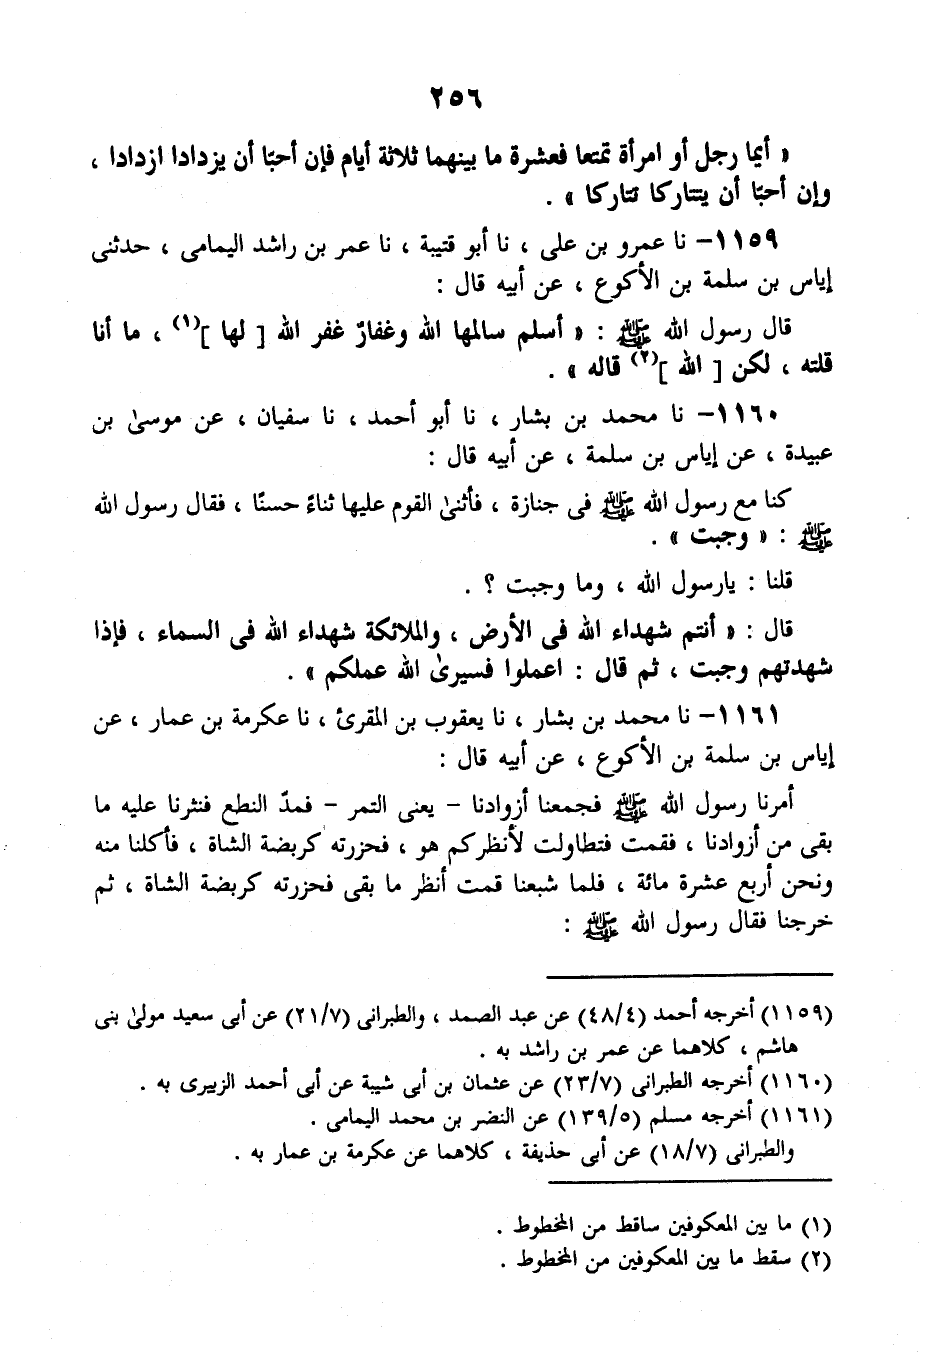 ٢٥٦
« أيما رجل أو امرأة تمتعا فعشرة ما بينهما ثلاثة أيام فإن أحبّا أن يزدادا ازدادا ،
وإن أحبّا أن يتتاركا تتاركا » .
١١٥٩– نا عمرو بن على ، نا أبو قتيبة ، نا عمر بن راشد اليمامى ، حدثنى
إياس بن سلمة بن الأكوع ، عن أبيه قال :
قال رسول الله ﷺ : « أسلم سالمها الله وغفارٌ غفر الله [ لها ](١) ، ما أنا
قلته ، لكن [ الله ](٢) قاله » .
١١٦٠– نا محمد بن بشار ، نا أبو أحمد ، نا سفيان ، عن موسىٰ بن
عبيدة ، عن إياس بن سلمة ، عن أبيه قال :
كنا مع رسول الله ﷺ فى جنازة ، فأثنىٰ القوم عليها ثناءً حسنًا ، فقال رسول الله
ﷺ : « وجبت » .
قلنا : يارسول الله ، وما وجبت ؟ .
قال : « أنتم شهداء الله فى الأرض ، والملائكة شهداء الله فى السماء ، فإذا
شهدتهم وجبت ، ثم قال : اعملوا فسيرىٰ الله عملكم » .
١١٦١– نا محمد بن بشار ، نا يعقوب بن المقرئ ، نا عكرمة بن عمار ، عن
إياس بن سلمة بن الأكوع ، عن أبيه قال :
أمرنا رسول الله ﷺ فجمعنا أزوادنا – يعنى التمر – فمدّ النطع فنثرنا عليه ما
بقى من أزوادنا ، فقمت فتطاولت لأنظركم هو ، فحزرته كربضة الشاة ، فأكلنا منه
ونحن أربع عشرة مائة ، فلما شبعنا قمت أنظر ما بقى فحزرته كربضة الشاة ، ثم
خرجنا فقال رسول الله ﷺ :
(١١٥٩) أخرجه أحمد (٤٨/٤) عن عبد الصمد ، والطبرانى (٢١/٧) عن أبى سعيد مولىٰ بنى
هاشم ، كلاهما عن عمر بن راشد به .
(١١٦٠) أخرجه الطبرانى (٢٣/٧) عن عثمان بن أبى شيبة عن أبى أحمد الزبيرى به .
(١١٦١) أخرجه مسلم (١٣٩/٥) عن النضر بن محمد اليمامى .
والطبرانى (١٨/٧) عن أبى حذيفة ، كلاهما عن عكرمة بن عمار به .
(١) ما بين المعكوفين ساقط من المخطوط .
(٢) سقط ما بين المعكوفين من المخطوط .